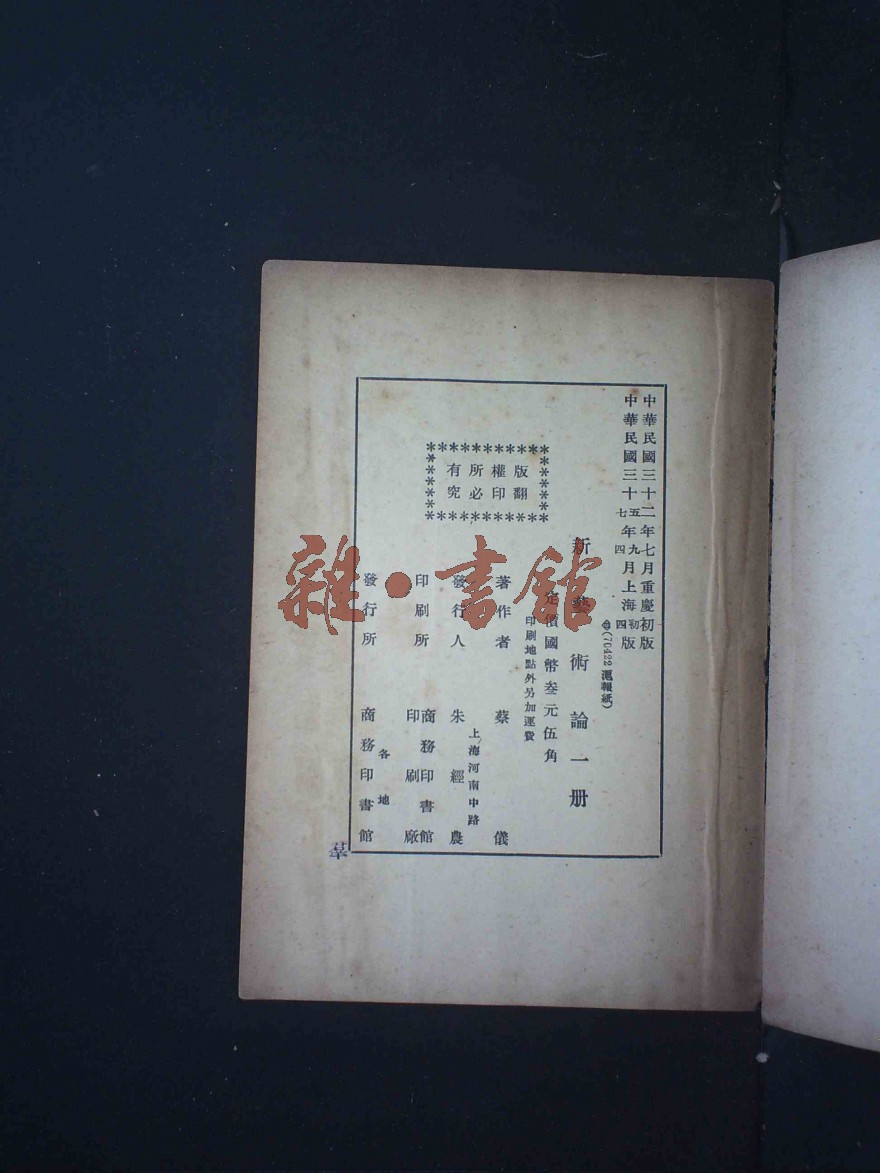 中華民國三十二年七月重慶初版
中華民國三十五七年九四月上海初四版
(70422滬報紙)
新藝術論一册
定價國幣叁元伍角
印刷地點外另加運費
版權所有
翻印必究
著作者 蔡儀
上海河南中路
發行人 朱經農
印刷所 商務印書館
印刷廠
各地
發行所 商務印書館
雜·書館